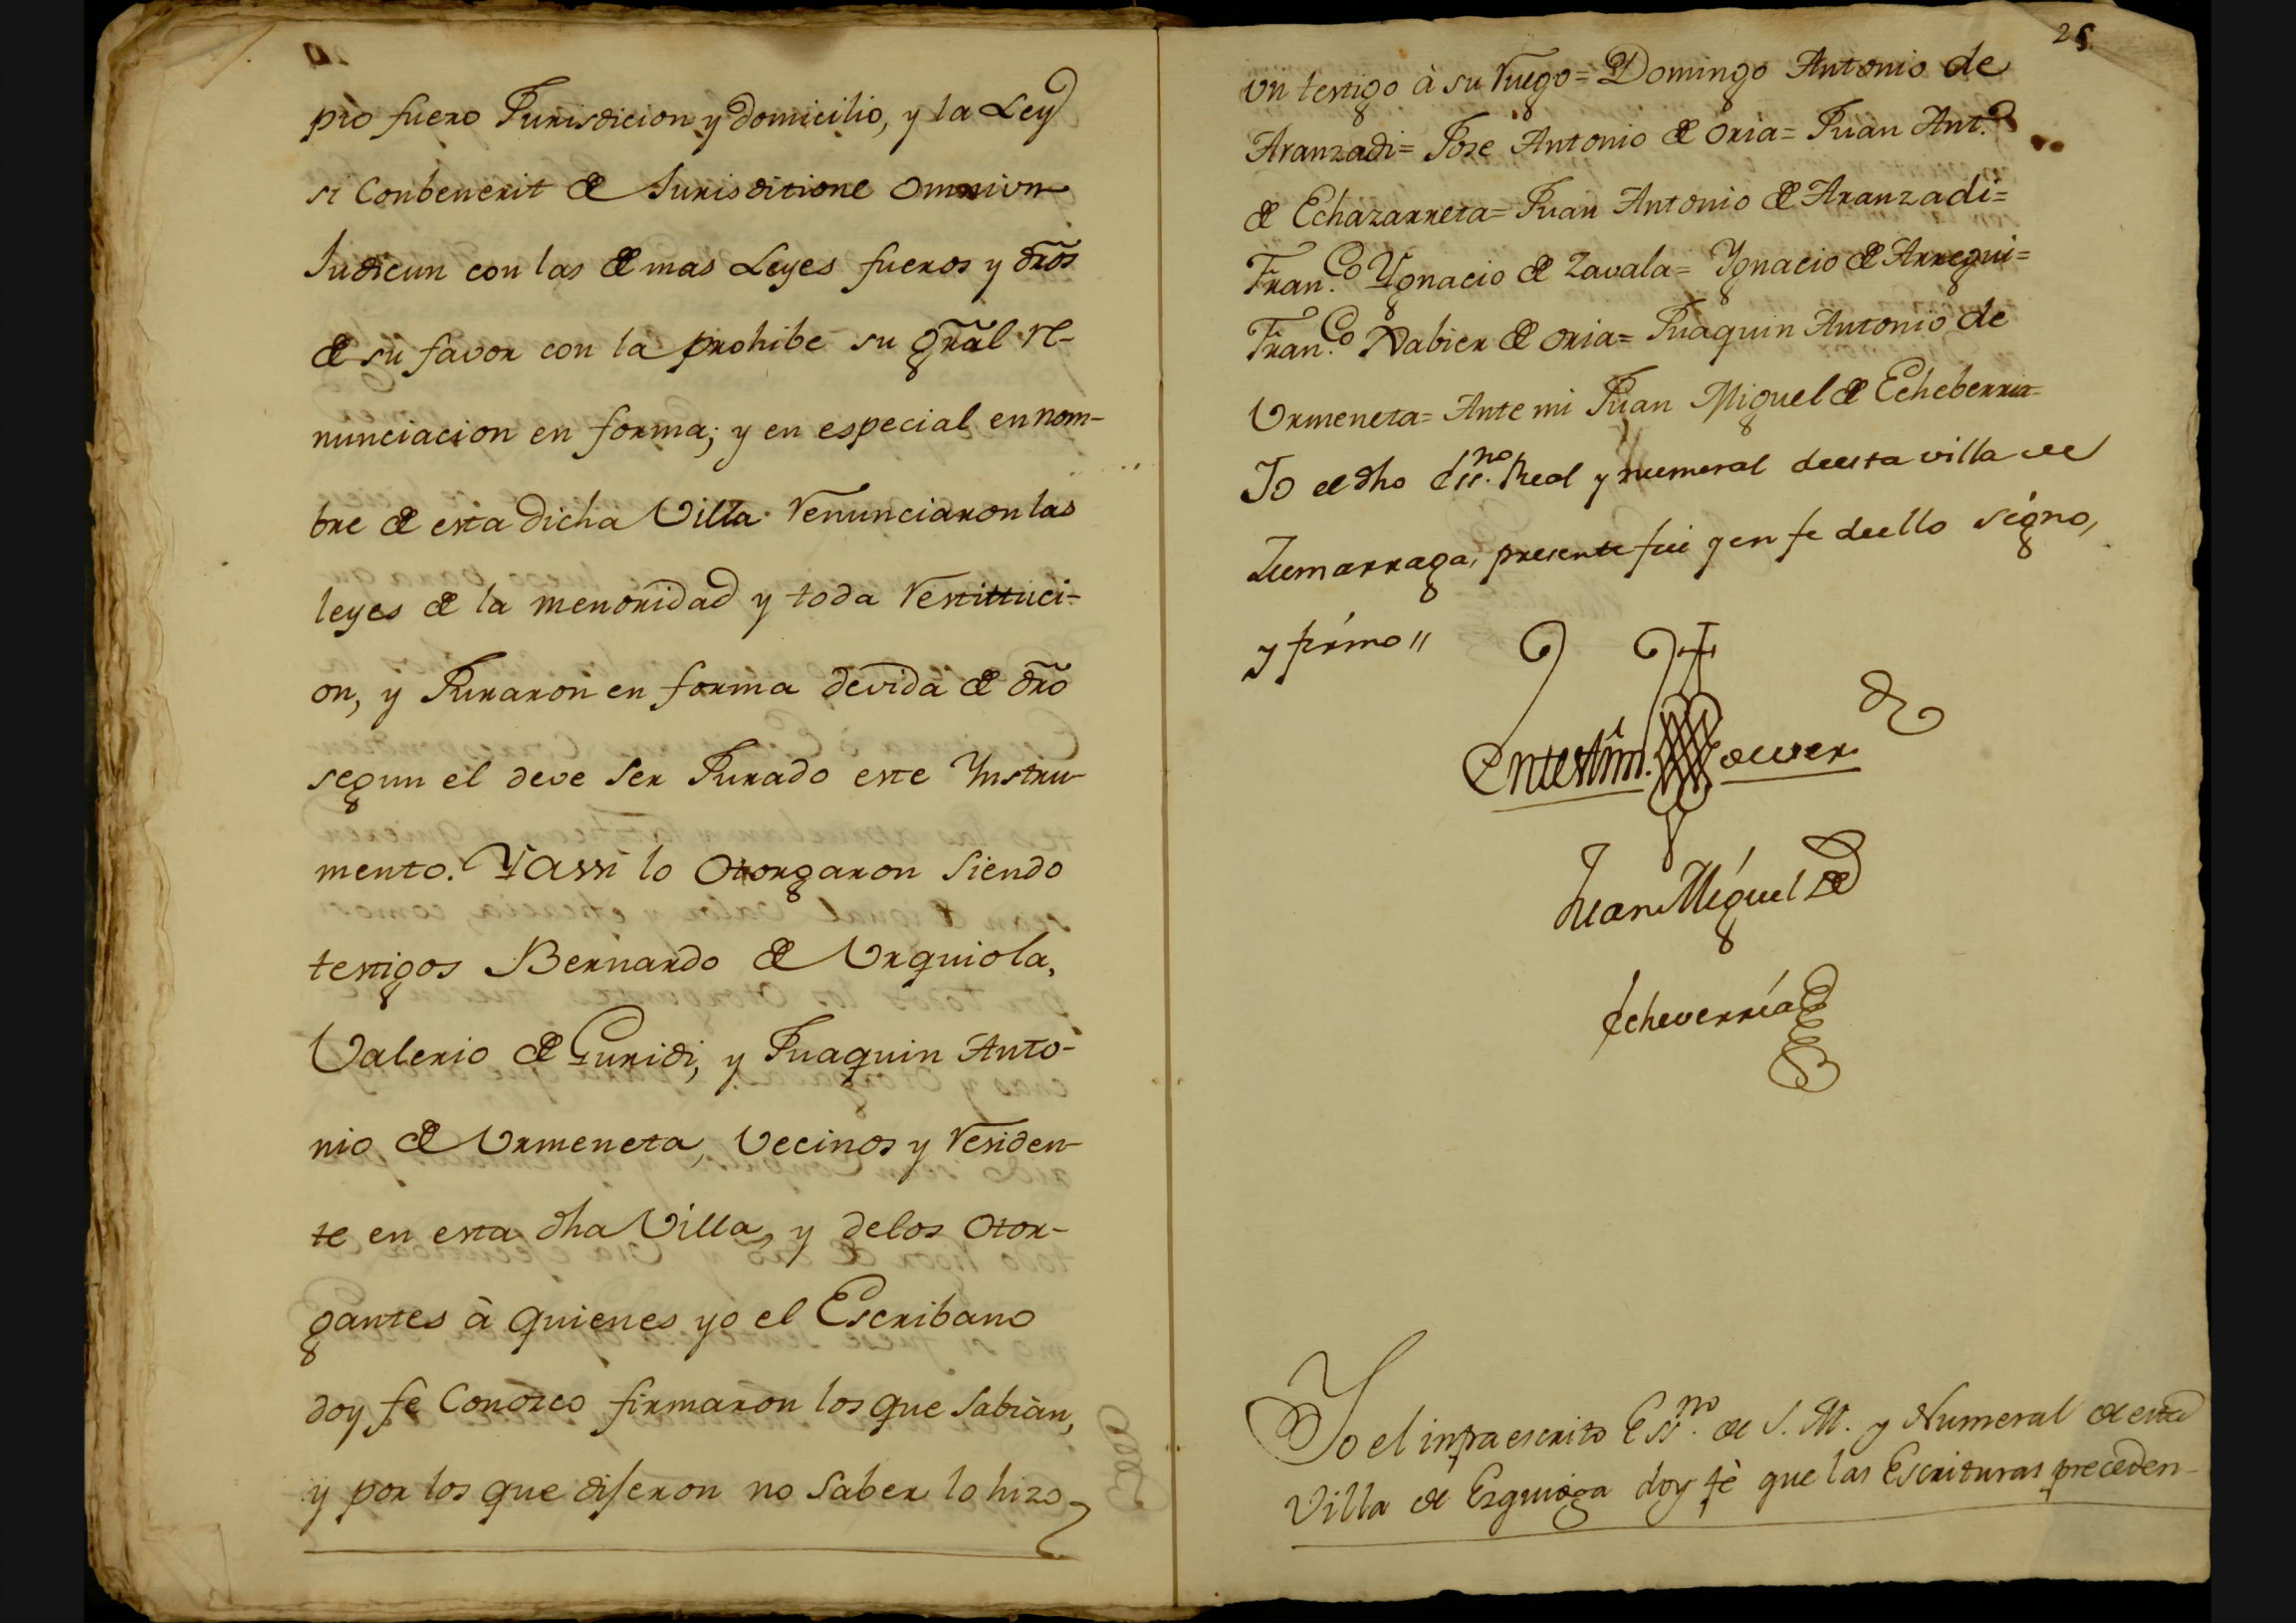 pio fuero Jurisdicion y domicilio, y la Ley
si Conbenerit de Jurisditione omniun
Judicun con las demas Leyes fueros y dr̃os
de su favor con la prohibe su gr̃al re-
nunciacion en forma; y en especial en nom-
bre de esta dicha Villa renunciaron las
leyes de la menoridad y toda restittuci-
on, y Juraron en forma devida de dr̃o
segun el deve ser Jurado este Ynstru-
mento. Y assi lo otorgaron siendo
testigos Bernardo de Urquiola,
Valerio de Guridi, y Juaquin Anto-
nio de Urmeneta, Vecinos y residen-
te en esta dha Villa, y delos otor-
gantes à quienes yo el Escribano
doy fe Conozco firmaron los que sabian,
y por los que dijeron no saber lo hizo
25
un testigo à su ruego= Domingo Antonio de
Aranzadi= Jose Antonio de Oria= Juan Ant.o
de Echazarreta= Juan Antonio de Aranzadi=
Fran.co Ygnacio de Zavala= Ygnacio de Arregui=
Fran.co Xabier de Oria= Juaquin Antonio de
Urmeneta= Ante mi Juan Miguel de Echeberria=
Yo el dho Ess.no Real y numeral deesta villa de
Zumarraga, presente fui y en fe deello signo,
y firmo //
En testim.o de ver
Juan Miguel de
Echeverría
Yo el infraescrito Ess.no de S. M. y Numeral de esta
Villa de Ezquioga doy fè que las Escrituras preceden-